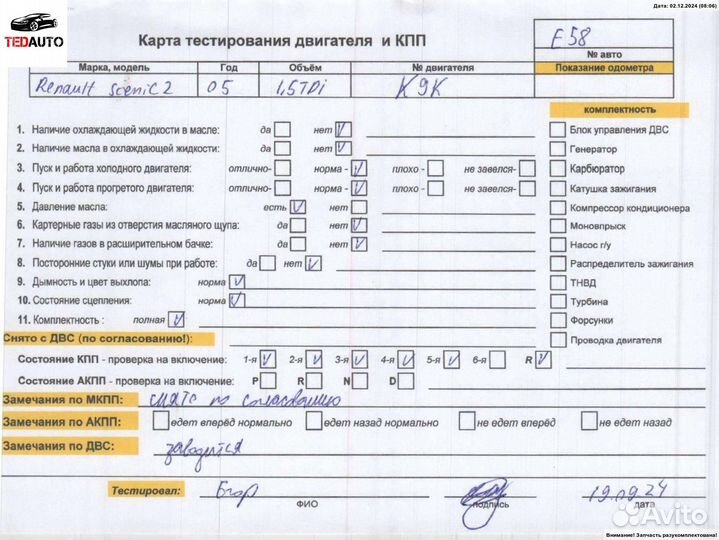 Дата: 02.12.2024 (08:06)
TEDAUTO
Карта тестирования двигателя и КПП
E58
№ авто
Марка, модель Год Объём № двигателя Показание одометра
Renault Scenic 2 05 1,5TDi K9K
комплектность
1. Наличие охлаждающей жидкости в масле: да нет V Блок управления ДВС
2. Наличие масла в охлаждающей жидкости: да нет V Генератор
3. Пуск и работа холодного двигателя: отлично- норма - V плохо - не завелся- Карбюратор
4. Пуск и работа прогретого двигателя: отлично- норма - V плохо - не завелся- Катушка зажигания
5. Давление масла: есть V нет Компрессор кондиционера
6. Картерные газы из отверстия масляного щупа: да нет V Моновпрыск
7. Наличие газов в расширительном бачке: да нет V Насос г/у
8. Посторонние стуки или шумы при работе: да нет V Распределитель зажигания
9. Дымность и цвет выхлопа: норма V ТНВД
10. Состояние сцепления: норма V Турбина
11. Комплектность : полная V Форсунки
Снято с ДВС (по согласованию!): Проводка двигателя
Состояние КПП - проверка на включение: 1-я V 2-я V 3-я V 4-я V 5-я V 6-я R V
Состояние АКПП - проверка на включение: P R N D
Замечания по МКПП: снято по согласованию
Замечания по АКПП: едет вперёд нормально едет назад нормально не едет вперёд не едет назад
Замечания по ДВС: заводится
Тестировал: Егор 19.09.24
ФИО подпись дата
Avito
Внимание! Запчасть разукомплектована!